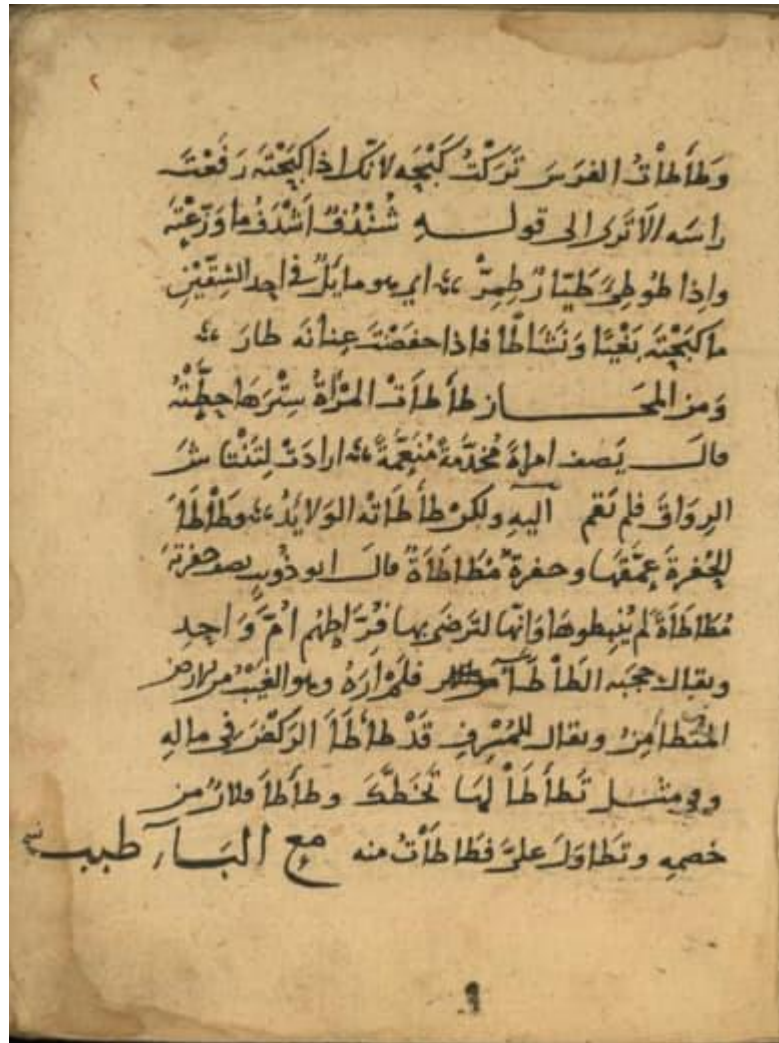 وَطَأطَأْتُ الفَرَسَ تَرَكْتُ كَبْحَه لانّك اذا كَبَحْتَه رَفَعْتَ
راسَه الَا تَرى الى قولـــهِ شُنْدُفٌ اَشْدَفُ ما وَرَّعْتَه
واِذا طُوطِئَ طَيَّارٌ طِمِرٌّ اي هو مايلٌ في احِد الشِقَّيْنِ
ما كَبَحْتَه بَغْيًا وَنَشَاطًا فاذا خفَضْتَ عِنانَه طارَ
وَمن المجَـــاز طأطَأتْ المَرْأةُ سِتْرَهَا حطَّتْهُ
قالَ يَصف امراةً مُخَدَّمةً مُنَعَّمةً ارادَتْ لِتَنْتاشَ
الرِوَاقَ فلم تَقم اليهِ ولكنْ طأطَاتْه الوَلايِدُ وَطَأْطَأَ
الحُفرةَ عمَّقَها وحفرةٌ مُطَاطَأةٌ قالَ ابو ذُويبٍ يصف حفرته
مُطَاطَأةً لم يُنبِطوهَا وَانّها لتَرضَى بها فُرّاطهُم امَّ وَاحِدِ
ويقال حجبَه الطَأطَآء فلمْ اَرَهُ وهو الغَيْبُ من الارض
المتطامِنُ ويقال للمُسْرِفِ قَدْ طأطَأَ الرَكْضَ في مالِهِ
وفي مثـــل تَطَأطَأْ لهَا تُخْطِكَ وطأطَأ فلانٌ من
خصمِه وتطاوَلَ علىَّ فتطاطَأتُ منه مع البَاءِ طبب